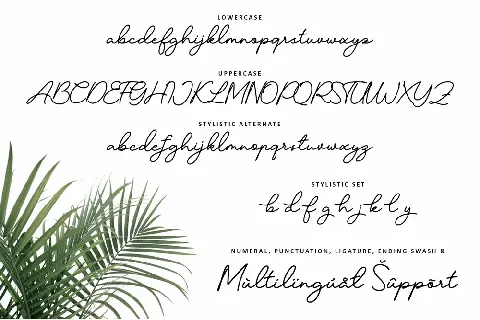 LOWERCASE
abcdefghijklmnopqrstuvwxyz
UPPERCASE
ABCDEFGHIJKLMNOPQRSTUVWXYZ
STYLISTIC ALTERNATE
abcdefghijklmnopqrstuvwxyz
STYLISTIC SET
b d f g h j k l y
NUMERAL, PUNCTUATION, LIGATURE, ENDING SWASH &
Mùltilïngúåł Šûppört